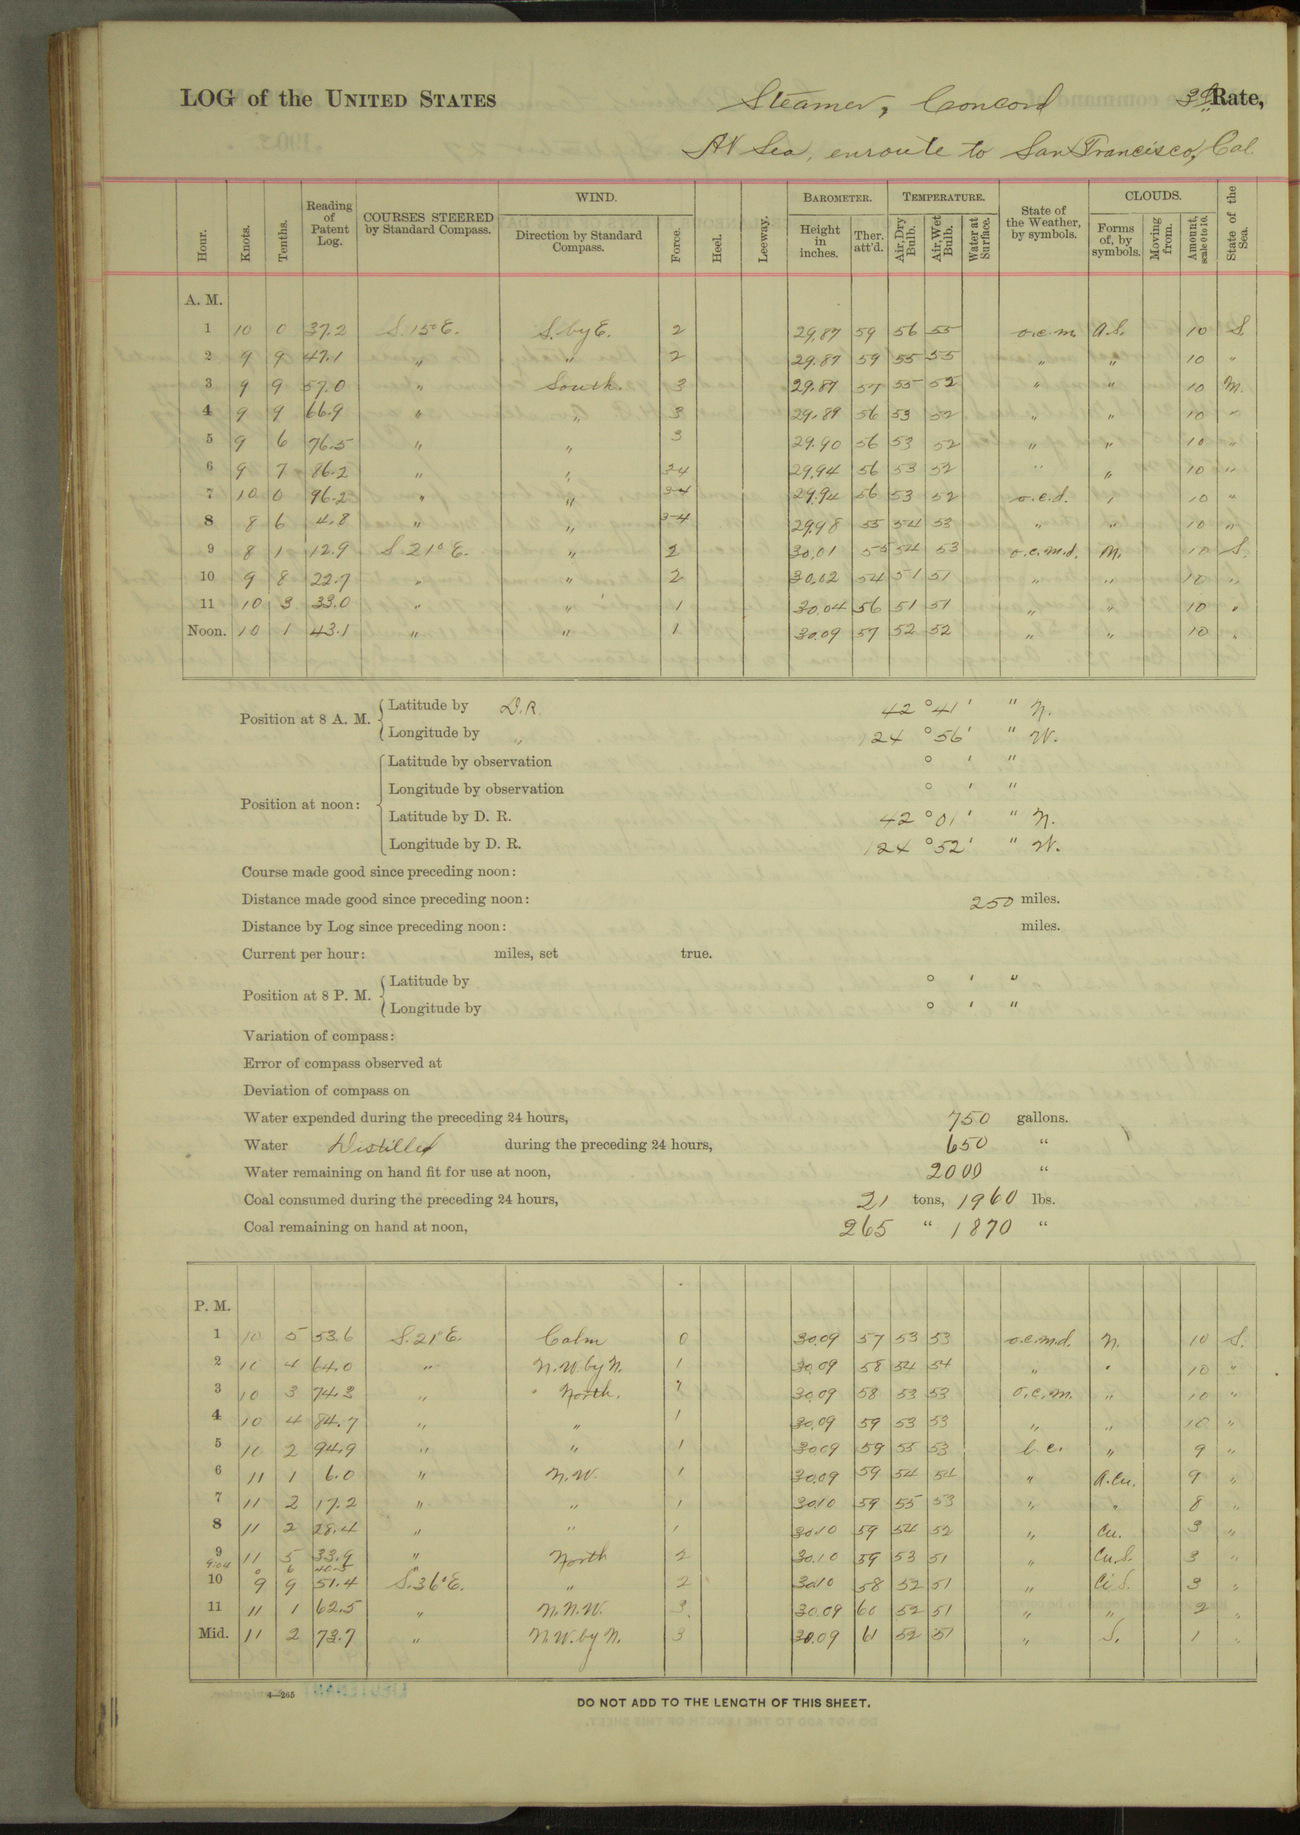 LOG of the UNITED STATES Steamer, Concord 3d Rate,
At Sea, enroute to San Francisco, Cal.
Hour. Knots. Tenths. Reading of Patent Log. COURSES STEERED by Standard Compass. WIND. Direction by Standard Compass. Force. Heel. Leeway. BAROMETER. Height in inches. Ther. att'd. TEMPERATURE. Air, Dry Bulb. Air, Wet Bulb. Water at Surface. State of the Weather, by symbols. CLOUDS. Forms of, by symbols. Moving from. Amount, scale 0 to 10. State of the Sea.
A. M.
1 10 0 37.2 S. 15° E. S. by E. 2 29.87 59 56 55 o.c.m. A.S. 10 S.
2 9 9 47.1 " " 2 29.87 59 55 55 " " 10 "
3 9 9 57.0 " South. 3 29.87 57 55 52 " " 10 M.
4 9 9 66.9 " " 3 29.89 56 53 52 " " 10 "
5 9 6 76.5 " " 3 29.90 56 53 52 " " 10 "
6 9 7 86.2 " " 3-4 29.94 56 53 52 " " 10 "
7 10 0 96.2 " " 3-4 29.94 56 53 52 o.c.d. " 10 "
8 8 6 4.8 " " 3-4 29.98 55 54 53 " " 10 "
9 8 1 12.9 S. 21° E. " 2 30.01 55 54 53 o.c.m.d. N. 10 S.
10 9 8 22.7 " " 2 30.02 54 51 51 " " 10 "
11 10 3 33.0 " " 1 30.04 56 51 51 " " 10 "
Noon. 10 1 43.1 " " 1 30.09 57 52 52 " " 10 "
Position at 8 A. M. Latitude by D.R. 42 ° 41 ' " N.
Longitude by " 124 ° 56 ' " W.
Position at noon: Latitude by observation ° ' "
Longitude by observation ° ' "
Latitude by D. R. 42 ° 01 ' " N.
Longitude by D. R. 124 ° 52 ' " W.
Course made good since preceding noon:
Distance made good since preceding noon: 250 miles.
Distance by Log since preceding noon: miles.
Current per hour: miles, set true.
Position at 8 P. M. Latitude by ° ' "
Longitude by ° ' "
Variation of compass:
Error of compass observed at
Deviation of compass on
Water expended during the preceding 24 hours, 750 gallons.
Water Distilled during the preceding 24 hours, 650 "
Water remaining on hand fit for use at noon, 2000 "
Coal consumed during the preceding 24 hours, 21 tons, 1960 lbs.
Coal remaining on hand at noon, 265 " 1870 "
P. M.
1 10 5 53.6 S. 21° E. Calm 0 30.09 57 53 53 o.c.m.d. N. 10 S.
2 10 4 64.0 " N.W. by N. 1 30.09 58 54 54 " " 10 "
3 10 3 74.3 " North. 1 30.09 58 53 53 o.c.m. " 10 "
4 10 4 84.7 " " 1 30.09 59 53 53 " " 10 "
5 10 2 94.9 " " 1 30.09 59 55 53 b.c. " 9 "
6 11 1 6.0 " N.W. 1 30.09 59 54 54 " A.Cu. 9 "
7 11 2 17.2 " " 1 30.10 59 55 53 " " 8 "
8 11 2 28.4 " " 1 30.10 59 54 52 " Cu. 3 "
9 11 5 33.9 " North 2 30.10 59 53 51 " Cu.S. 3 "
9:04 0 6 "
10 9 9 51.4 S. 36° E. " 2 30.10 58 52 51 " Ci.S. 3 "
11 11 1 62.5 " N.N.W. 3. 30.09 60 52 51 " " 2 "
Mid. 11 2 73.7 " N.W. by N. 3 30.09 61 52 51 " S. 1 "
4—265
DO NOT ADD TO THE LENGTH OF THIS SHEET.